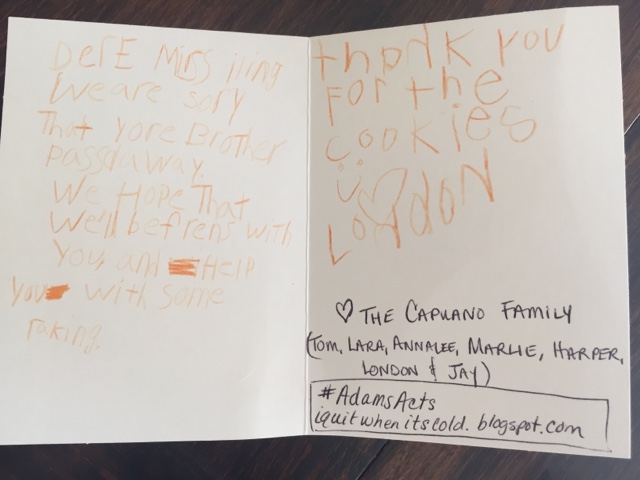 DerE Mirs jiing
We are sory
That yore Brother
passd away.
We Hope That
We'll be frens with
You, and Help
you with some
raking.
thank you
For the
cookies
LonDoN
♡ THE CAPUANO FAMILY
(TOM, LARA, ANNALEE, MARLIE, HARPER,
LONDON & JAY)
#AdamsActs
iquitwhenitscold.blogspot.com